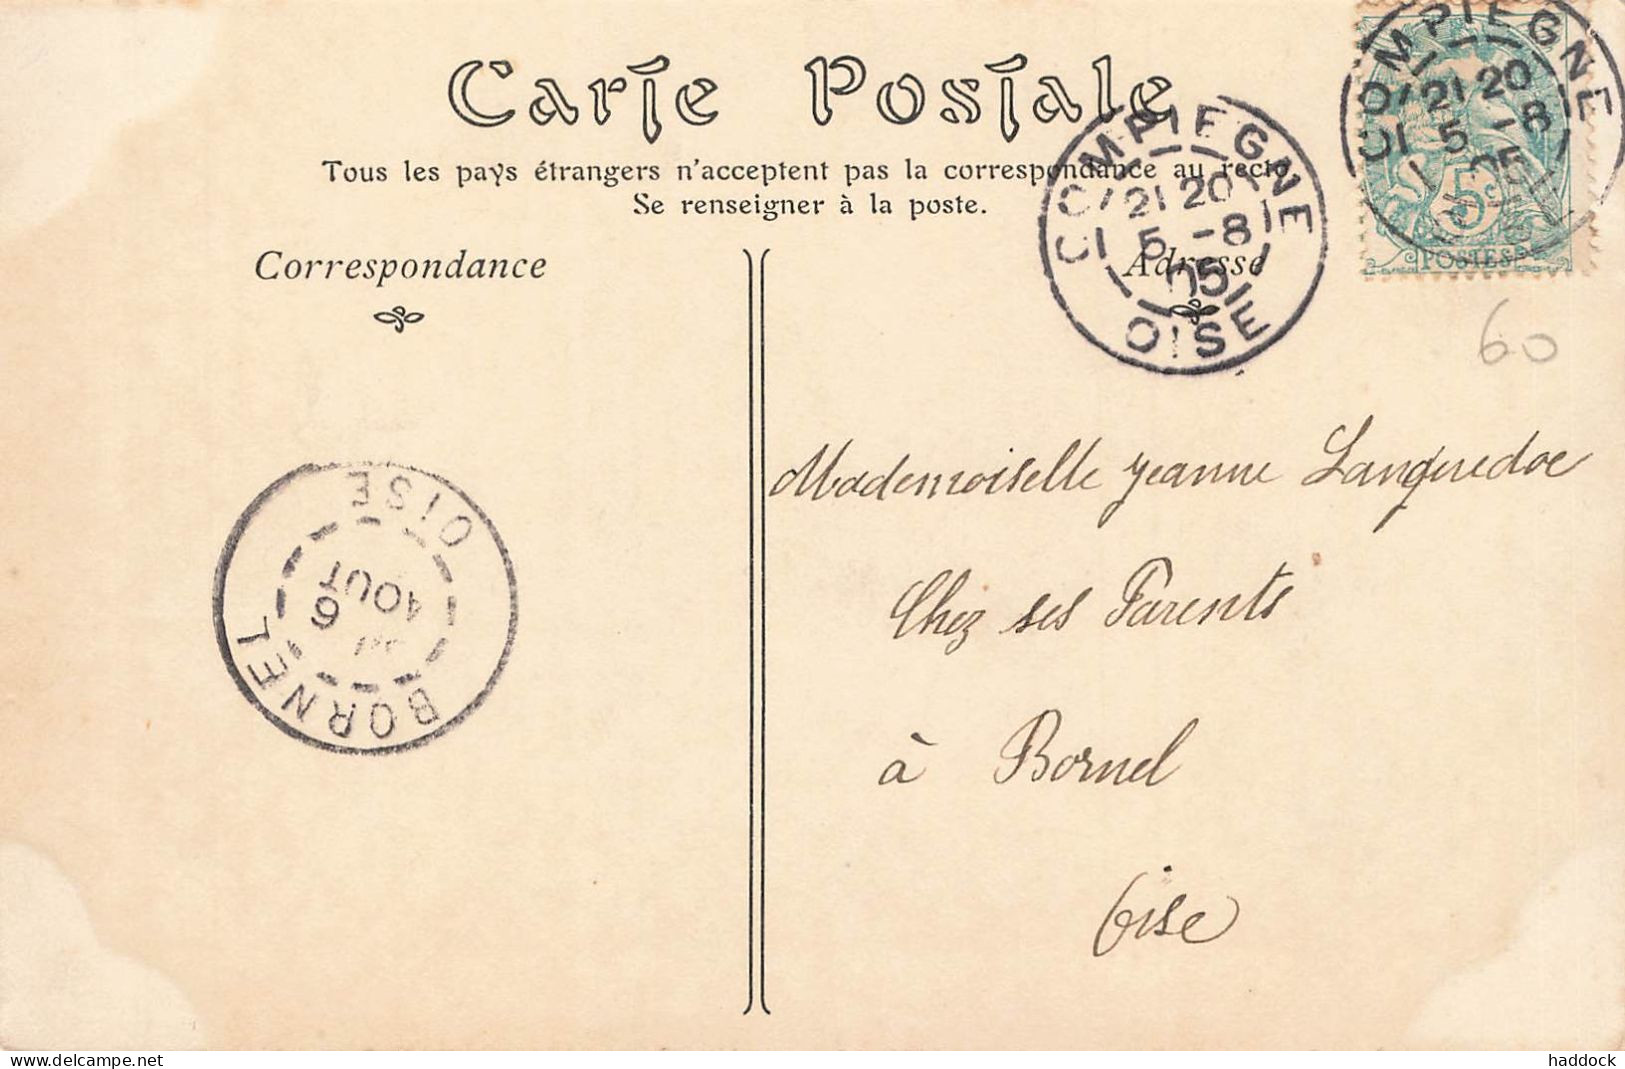 Carte Postale
Tous les pays étrangers n'acceptent pas la correspondance au recto
Se renseigner à la poste.
Correspondance
Adresse
COMPIEGNE
21 20
5 -8
05
OISE
COMPIEGNE
21 20
5 -8
05
5c
POSTES
60
Mademoiselle Jeanne Languedoc
Chez ses Parents
à Bornel
Oise
BORNEL
6
AOUT
OISE
www.delcampe.net
haddock